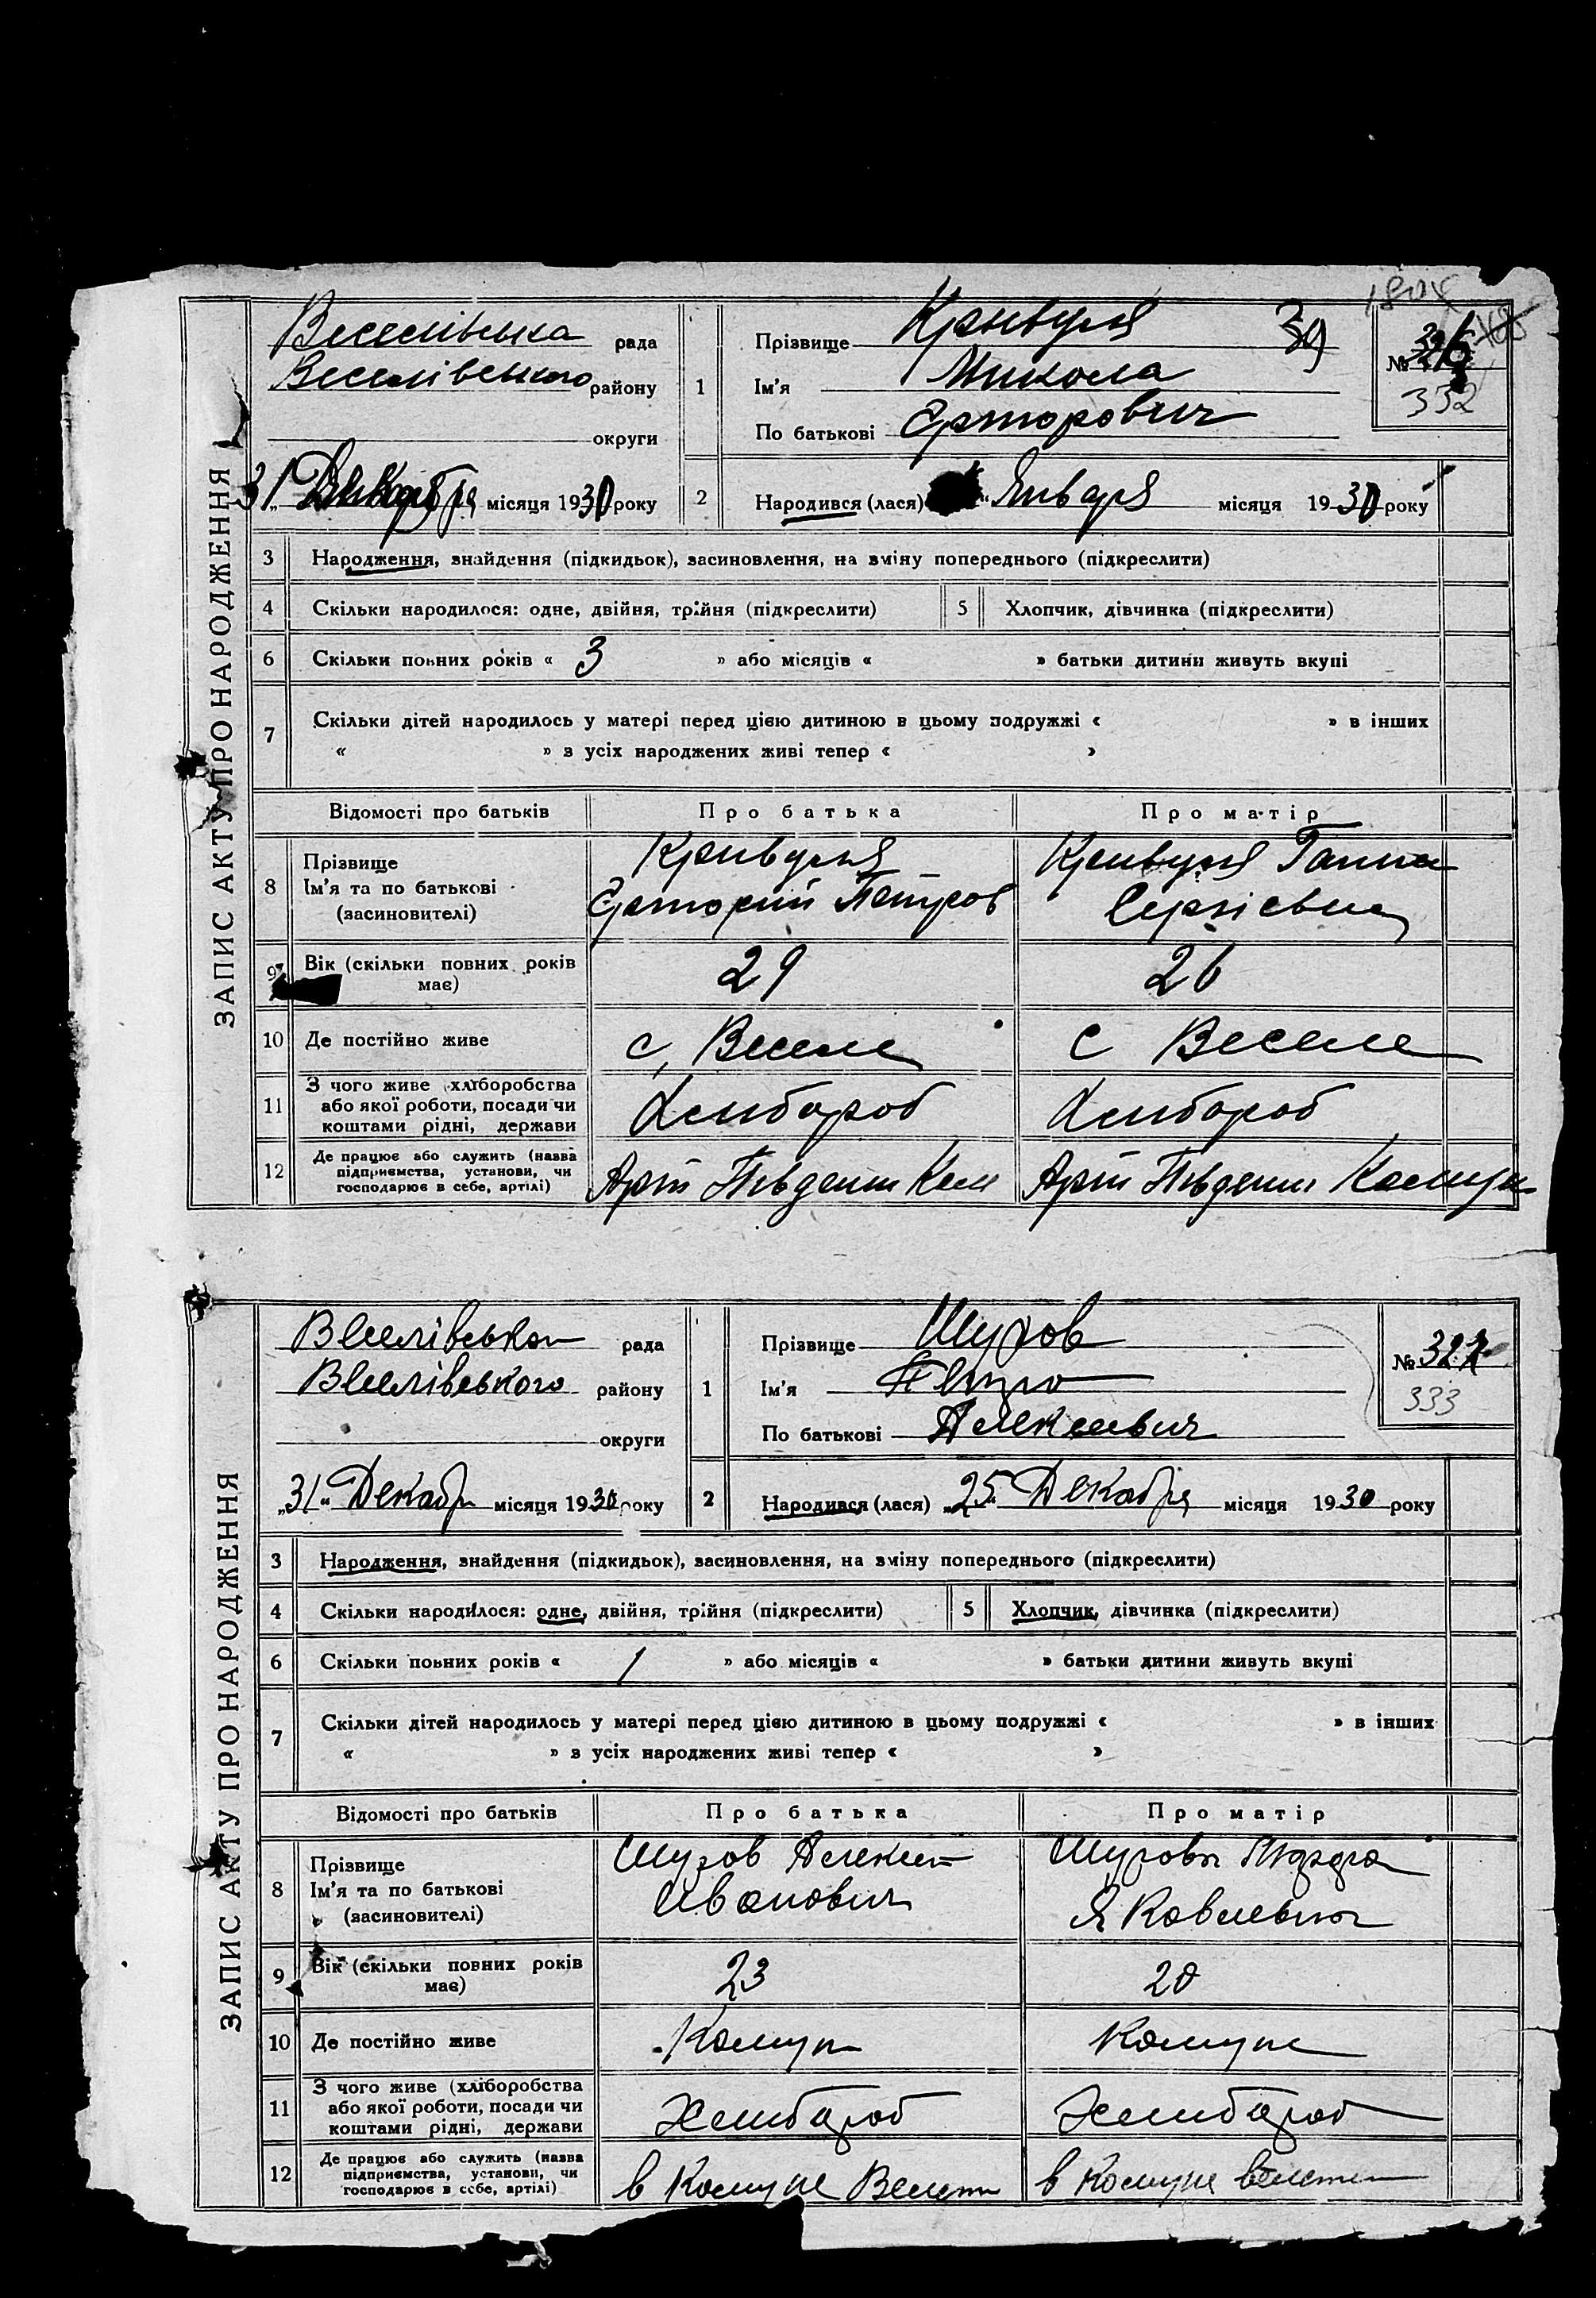 ЗАПИС АКТУ ПРО НАРОДЖЕННЯ
Веселівська рада
Веселівського району
округи
31 Декабря місяця 1930 року
1
Прізвище Кривуля 39
Ім'я Микола
По батькові
№ 326
332
2
Народився (лася) Января місяця 1930 року
3 Народження, знайдення (підкидьок), засиновлення, на зміну попереднього (підкреслити)
4 Скільки народилося: одне, двійня, трійня (підкреслити) 5 Хлопчик, дівчинка (підкреслити)
6 Скільки повних років « 3 » або місяців « » батьки дитини живуть вкупі
7 Скільки дітей народилось у матері перед цією дитиною в цьому подружжі « » в інших
« » з усіх народжених живі тепер « »
Відомості про батьків Про батька Про матір
8 Прізвище Кривуля Кривуля Ганна
Ім'я та по батькові Петров Сергієвна
(засиновителі)
9 Вік (скільки повних років має) 29 26
10 Де постійно живе с. Веселе с Веселе
11 З чого живе (хліборобства або якої роботи, посади чи коштами рідні, держави Хлибороб Хлибороб
12 Де працює або служить (назва підприємства, установи, чи господарює в себе, артілі) Арт Південн Ком Арт Південн Комун
ЗАПИС АКТУ ПРО НАРОДЖЕННЯ
Веселівська рада
Веселівського району
округи
„31" Декабр місяця 1930 року
1
Прізвище Шуров
Ім'я Петро
По батькові Алексеевич
№ 327
333
2
Народився (лася) „25" Декабря місяця 1930 року
3 Народження, знайдення (підкидьок), засиновлення, на зміну попереднього (підкреслити)
4 Скільки народилося: одне, двійня, трійня (підкреслити) 5 Хлопчик, дівчинка (підкреслити)
6 Скільки повних років « 1 » або місяців « » батьки дитини живуть вкупі
7 Скільки дітей народилось у матері перед цією дитиною в цьому подружжі « » в інших
« » з усіх народжених живі тепер « »
Відомості про батьків Про батька Про матір
8 Прізвище Шуров Алексей Шурова
Ім'я та по батькові Иванович Яковлевна
(засиновителі)
9 Вік (скільки повних років має) 23 20
10 Де постійно живе Комун Комуне
11 З чого живе (хліборобства або якої роботи, посади чи коштами рідні, держави Хлибороб Хлибороб
12 Де працює або служить (назва підприємства, установи, чи господарює в себе, артілі) в Комуне в Комуне